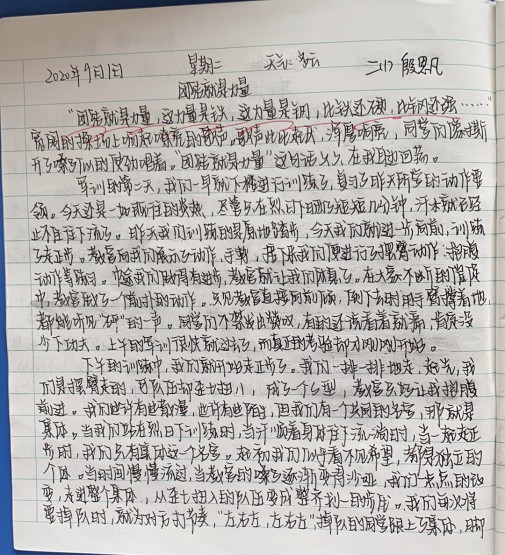 2020年9月1日 星期二 天气:多云 二(1) 殷思凡
团结就是力量
"团结就是力量,这力量是铁,这力量是钢,比铁还硬,比钢还强……"
宽阔的操场上响起嘹亮的歌声。歌声此起彼伏,浑厚响亮,同学们
开了嗓子似的使劲唱着。"团结就是力量"这句话久久在我耳边回荡。
军训的第二天,我们一早就下楼进行训练了,复习了昨天所学的动作要
领。今天还是一如既往的炎热,尽管只在烈日下曝晒短短几分钟,汗水就已经
止不住往下流了。昨天我们训练的是原地踏步,今天我们则进一步向前,训练
了走步。教官向我们展示了动作,手势,接下来我们便进行了摆臂动作、抬腿
动作等练习。中途我们做得有进步,教官就让我们休息了。在大家不断的催促
中,教官做了一个前扑的动作。只见教官直接向前倾,倒下去时用手臂撑着地,
都能听见"砰"的一声。同学们不禁发出赞叹,有的还说看着就痛,肯定没
少下功夫。上午的军训很快就过去了,而真正的考验却才刚刚开始。
下午的训练中,我们就开始走正步了。我们一排一排地走,起先,我
们是摆臂走的,可队伍却歪七扭八,成了个S型,教官只好让我们
前进。我们也许有些散漫,也许有些陌生,但我们有一个共同的名字,那就是
集体。当我们站在烈日下训练时,当汗顺着身体往下流淌时,当一起走正
步时,我们只有集体这一个名字。起初我们似乎看不见希望,都是独立的
个体。当时间慢慢流过,当教官的嗓子逐渐变得沙哑,我们一点点的改
变,走进整个集体,从歪七扭八的队伍变成整齐划一的步伐。我们每次将
要掉队时,就为对方打节奏,"左右左,左右左",掉队的同学跟上了集体,